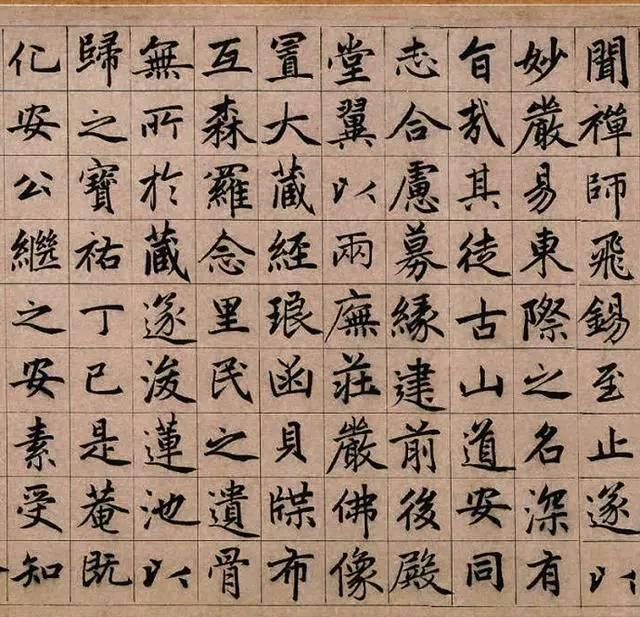 聞禪師飛錫至止遂以
妙嚴易東際之名深有
旨哉其徒古山道安同
志合慮募緣建前後殿
堂翼以兩廡莊嚴佛像
置大藏經琅函貝牒布
互森羅念里民之遺骨
無所於藏遂浚蓮池以
歸之寶祐丁巳是菴既
化安公繼之安素受知